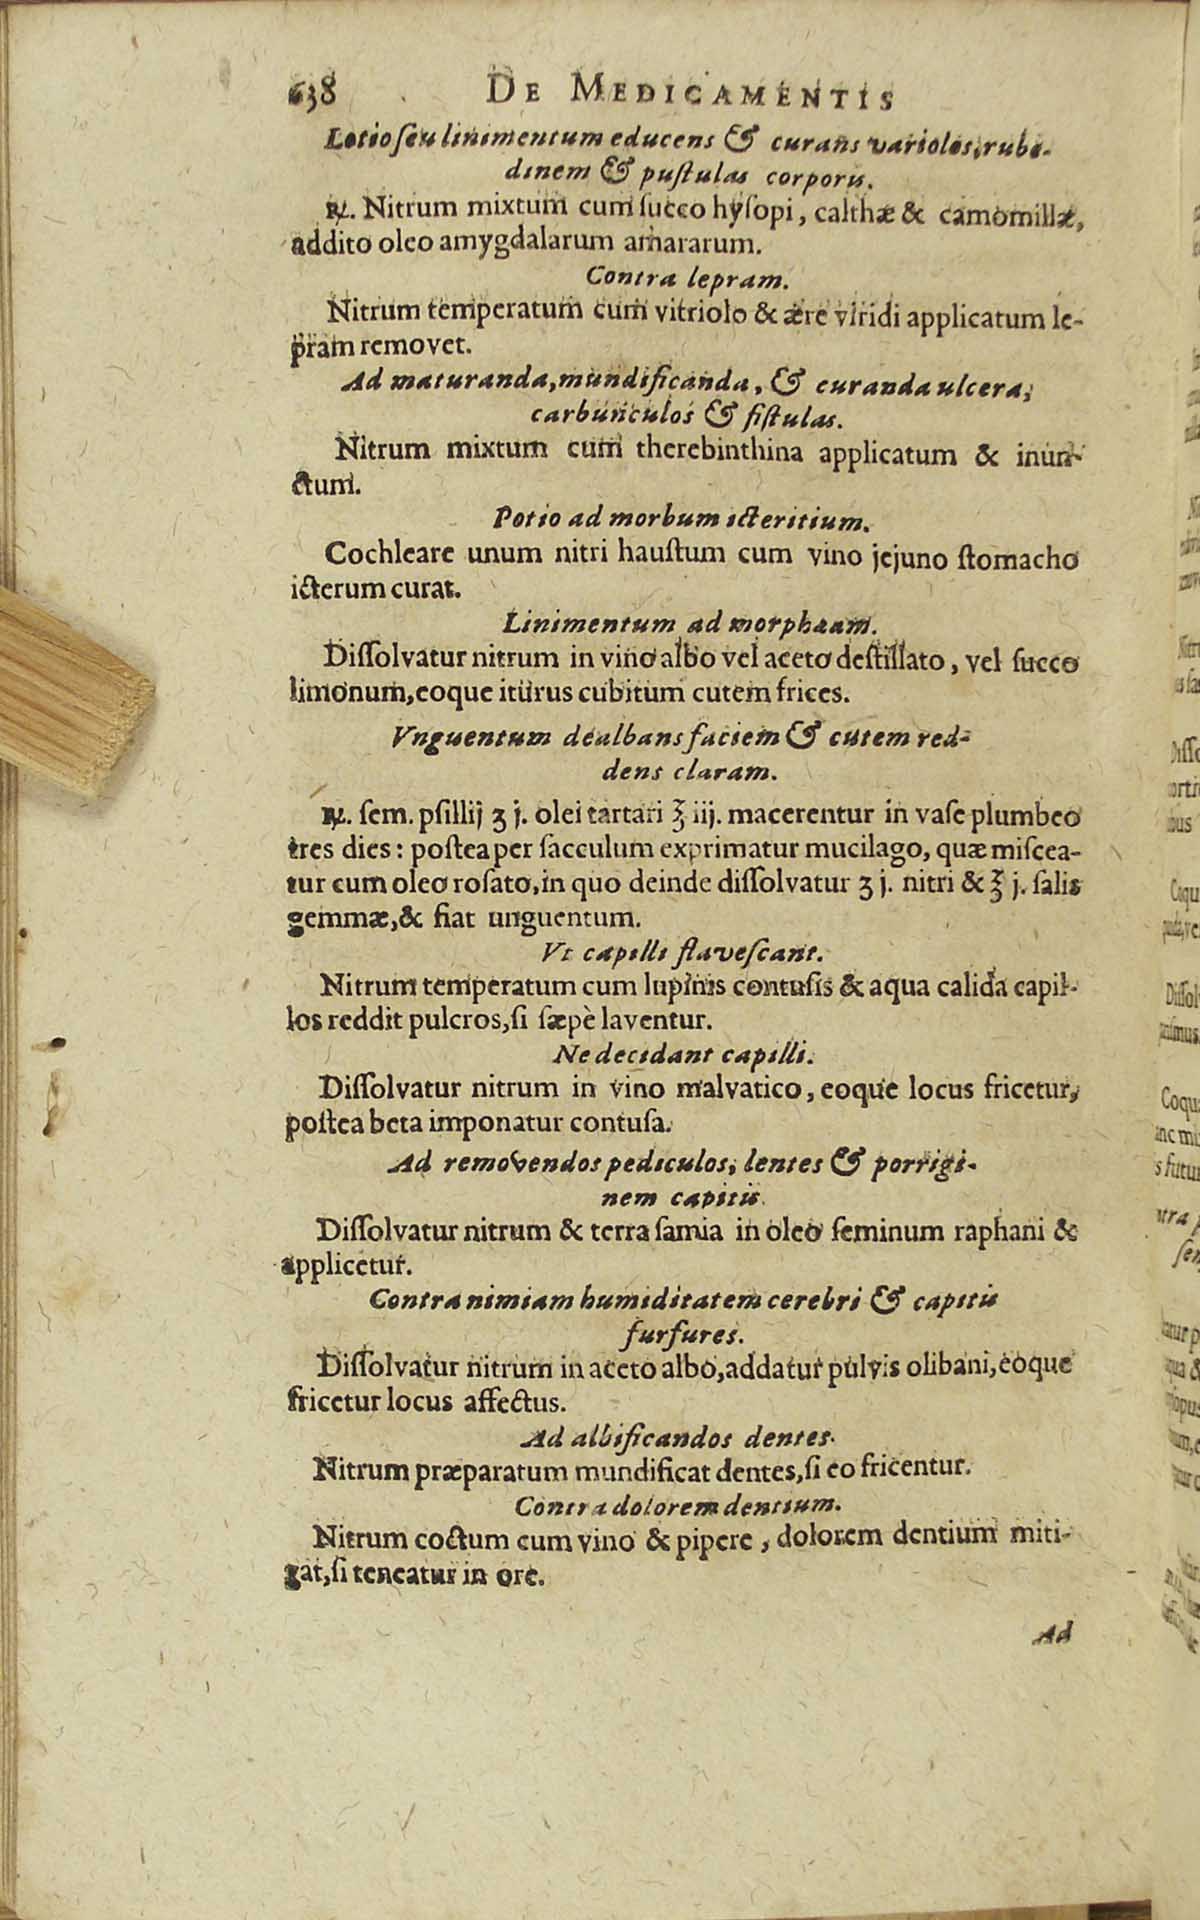 638 DE MEDICAMENTIS
Lotio ſeu linimentum educens & curans variolos, rube-
dinem & puſtulas corporis.
℞. Nitrum mixtum cum ſucco hyſopi, calthæ & camomillæ,
addito oleo amygdalarum amararum.
Contra lepram.
Nitrum temperatum cum vitriolo & ære viridi applicatum le-
pram removet.
Ad maturanda, mundificanda, & curanda ulcera,
carbunculos & fiſtulas.
Nitrum mixtum cum therebinthina applicatum & inun-
ctum.
Potio ad morbum icteritium.
Cochleare unum nitri hauſtum cum vino jejuno ſtomacho
icterum curat.
Linimentum ad morphæam.
Diſſolvatur nitrum in vino albo vel aceto deſtillato, vel ſucco
limonum, eoque iturus cubitum cutem frices.
Vnguentum dealbans faciem & cutem red-
dens claram.
℞. ſem. pſillij ʒ j. olei tartari ℥ iij. macerentur in vaſe plumbeo
tres dies: poſtea per ſacculum exprimatur mucilago, quæ miſcea-
tur cum oleo roſato, in quo deinde diſſolvatur ʒ j. nitri & ℥ j. ſalis
gemmæ, & fiat unguentum.
Vt capilli flaveſcant.
Nitrum temperatum cum lupinis contuſis & aqua calida capil-
los reddit pulcros, ſi ſæpè laventur.
Ne decidant capilli.
Diſſolvatur nitrum in vino malvatico, eoque locus fricetur,
poſtea beta imponatur contuſa.
Ad removendos pediculos, lentes & porrigi-
nem capitis.
Diſſolvatur nitrum & terra ſamia in oleo ſeminum raphani &
applicetur.
Contra nimiam humiditatem cerebri & capitis
furfures.
Diſſolvatur nitrum in aceto albo, addatur pulvis olibani, eoque
fricetur locus affectus.
Ad albificandos dentes.
Nitrum præparatum mundificat dentes, ſi eo fricentur.
Contra dolorem dentium.
Nitrum coctum cum vino & pipere, dolorem dentium miti-
gat, ſi teneatur in ore.
Ad